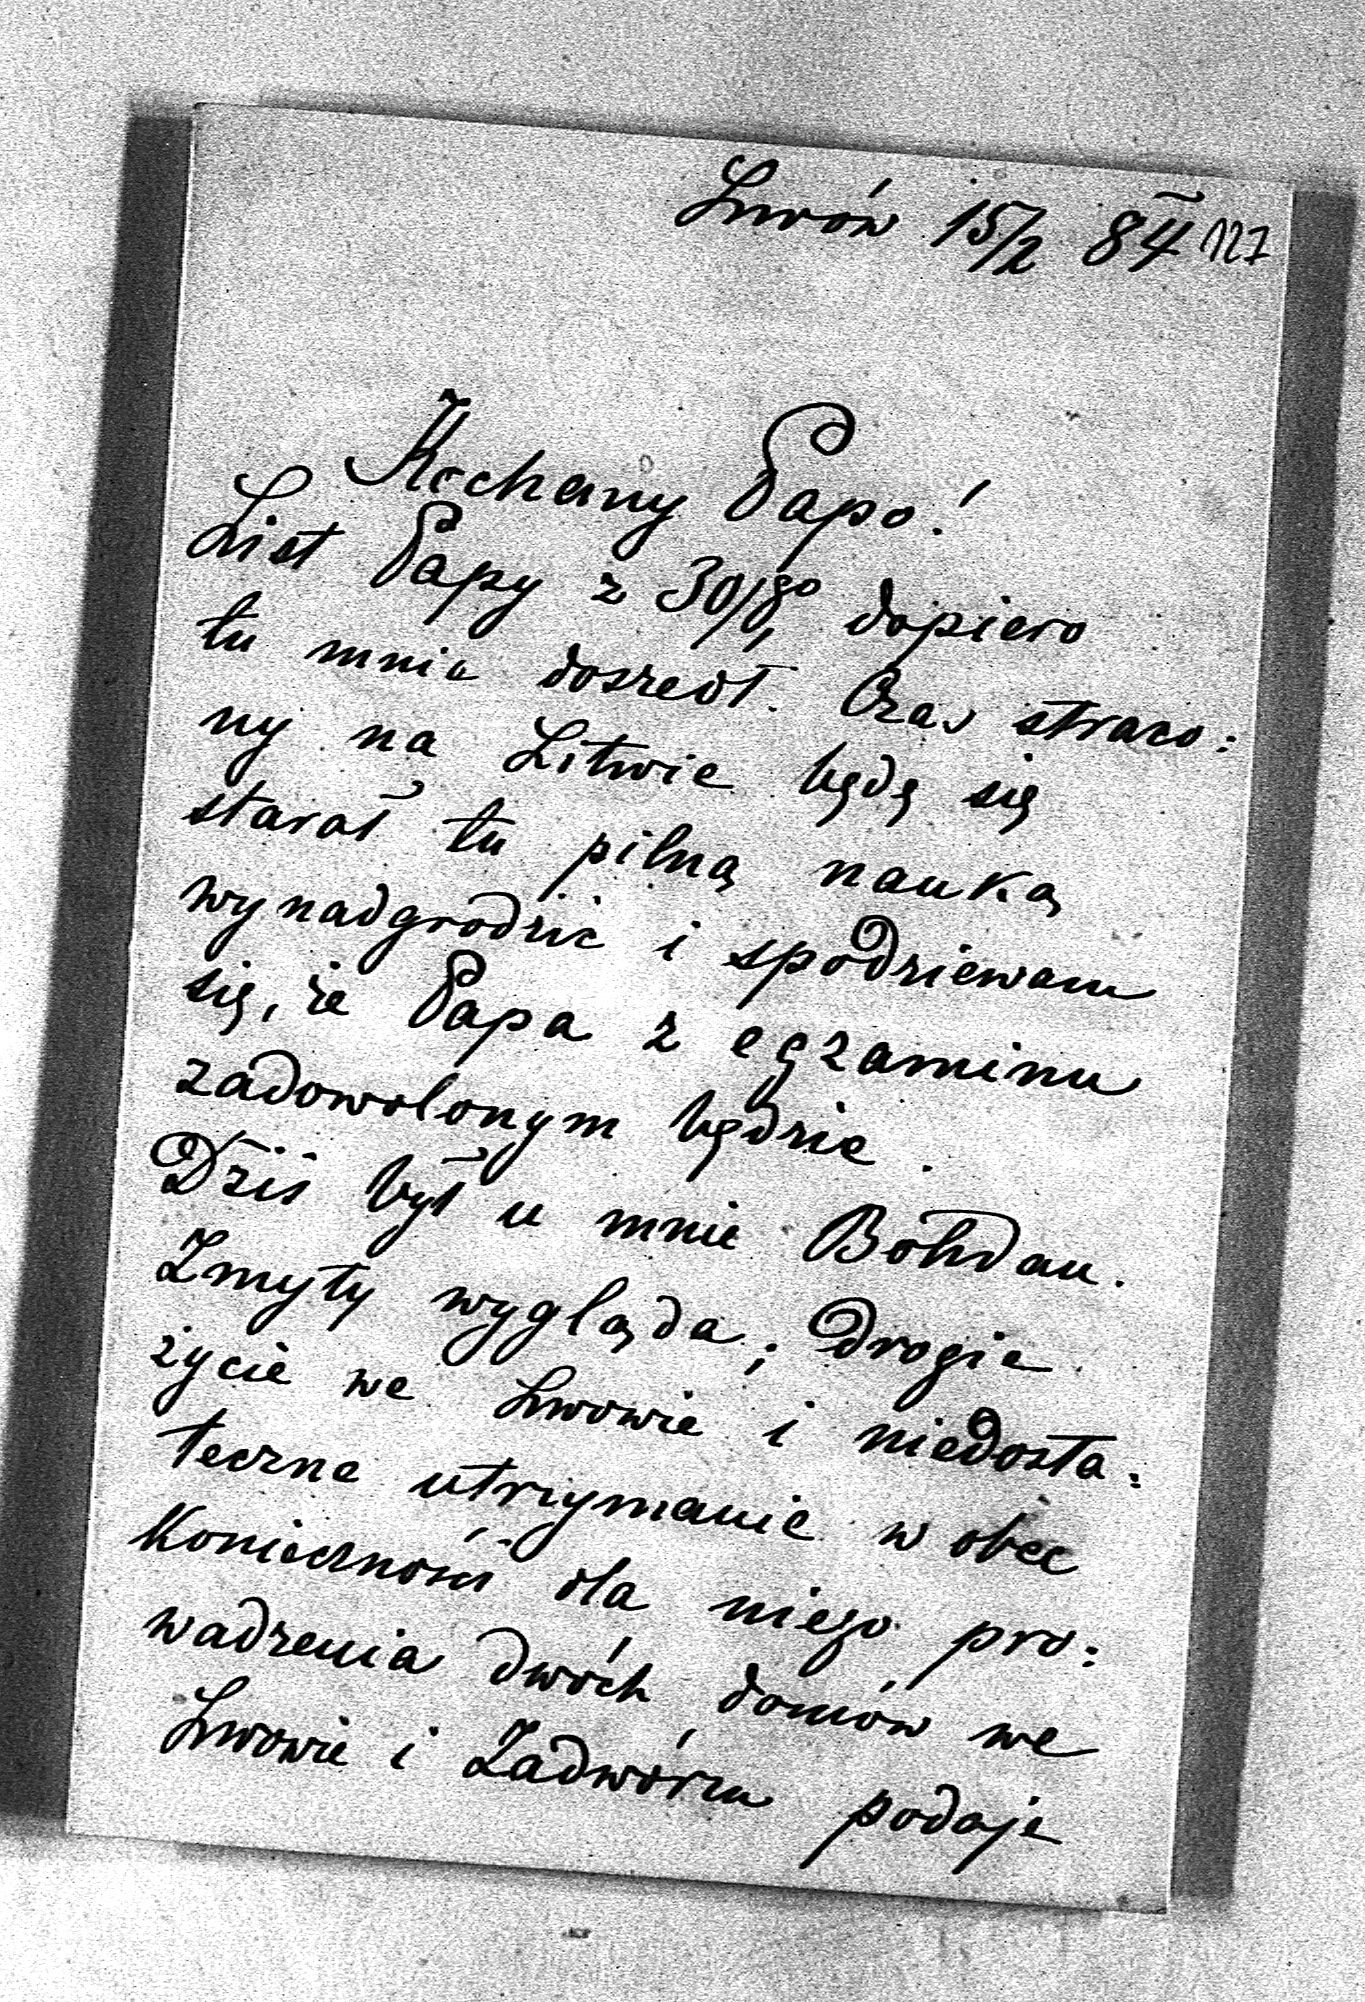 Lwów 15/2 84 127
Kochany Papo!
List Papy z 30/1go dopiero
tu mnie doszedł. Czas straco:
ny na Litwie będę się
starał tu pilną nauką
wynadgrodzić i spodziewam
się, że Papa z egzaminu
zadowolonym będzie.
Dziś był u mnie Bohdan.
Zmyty wygląda; drogie
życie we Lwowie i niedosta:
teczne utrzymanie wobec
konieczności dla niego pro:
wadzenia dwóch domów we
Lwowie i Zadwórzu podaje